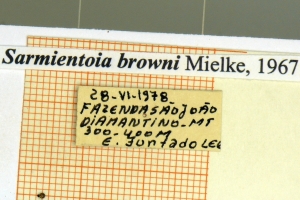 Sarmientoia browni Mielke, 1967
28-VI-1978
FAZENDA SÃO JOÃO
DIAMANTINO-MT
300-400M
E. Furtado LEG